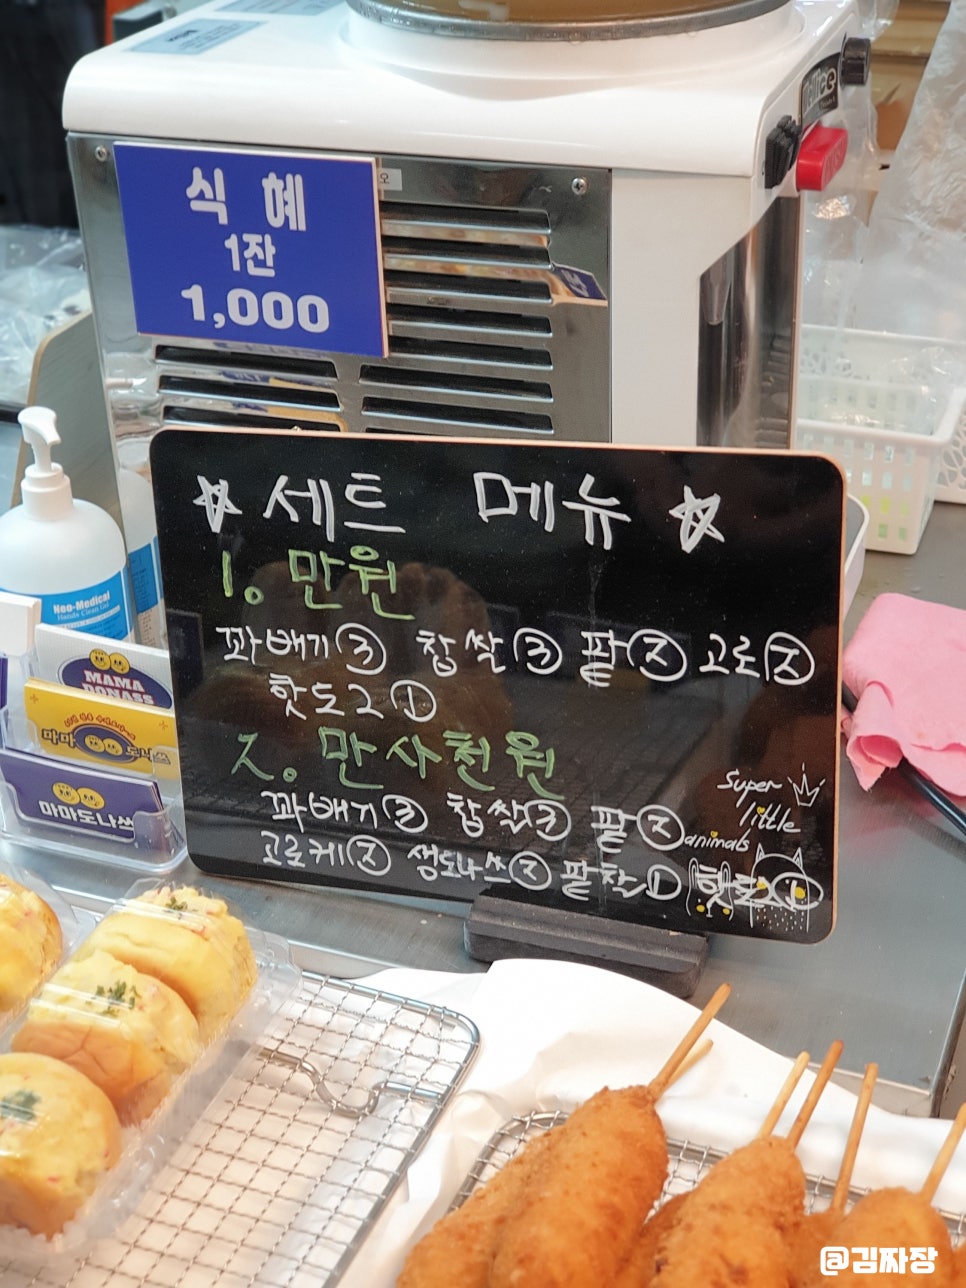 식 혜
1잔
1,000
오
☆ 세트 메뉴 ☆
1. 만원
꽈배기③ 찹쌀③ 팥② 고로②
핫도그①
2. 만사천원
꽈배기③ 찹쌀③ 팥②
고로케② 생도나쓰② 팥찰① 핫도①
Super
little
animals
Neo-Medical
Hands Clean Gel
MAMA
DONASS
마마 도나쓰
마마도나쓰
@김짜장